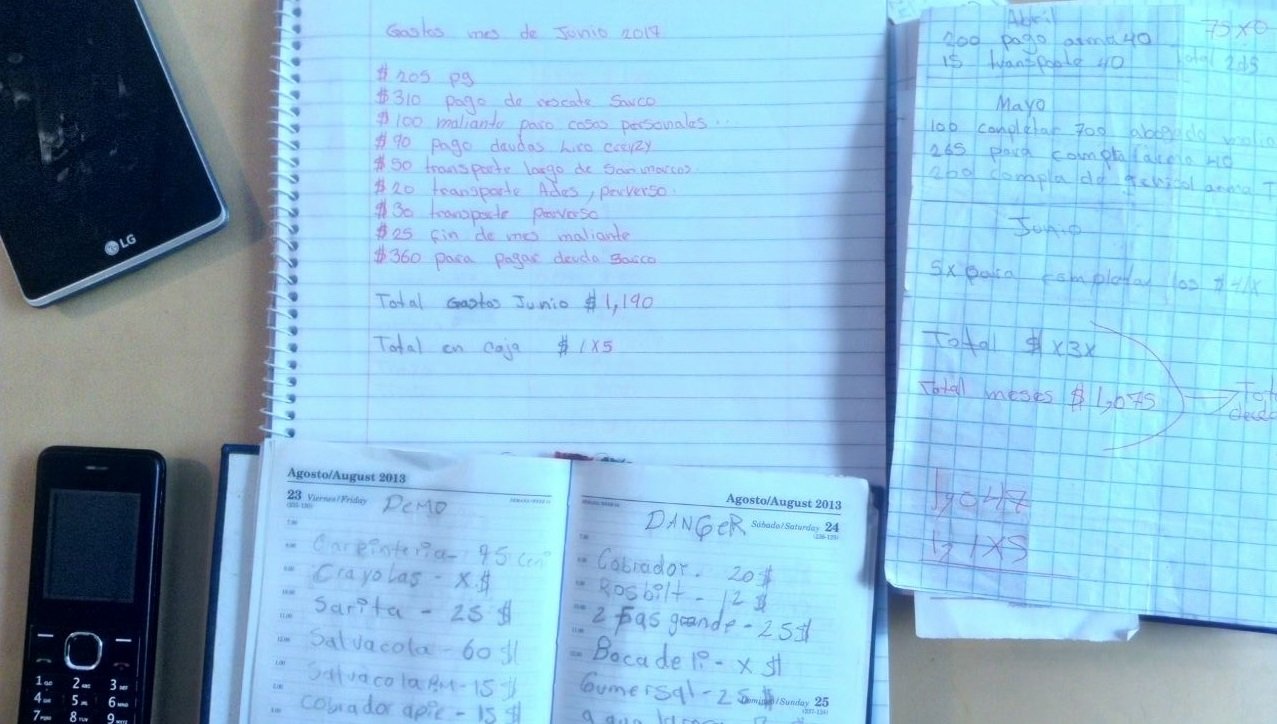 LG
Gastos mes de Junio 2017
$ 205 pg
$ 310 pago de rescate Sarco
$ 100 maliante para cosas personales
$ 90 pago deudas Lico creyzy
$ 50 transporte largo de San marcos
$ 20 transporte Ades, perverso.
$ 30 transporte perverso
$ 25 fin de mes maliante
$ 360 para pagar deuda Sarco
Total Gastos Junio $ 1,190
Total en caja $ 1X5
Abril
75X0
200 pago arma 40
15 transporte 40
Total
Mayo
100 completar 700 abogado
265 para
200 compla de arma
Junio
5X para completar los $
Total $ X3X
Total meses $ 1,075
1,047
1,1X5
Agosto/August 2013
23 Viernes/Friday
DEMO
Carpinteria - 95
Crayolas - X $
Sarita - 25 $
Salvacola - 60 $
Salvacola - 15 $
cobrador apie - 15 $
Agosto/August 2013
DANGER
Sábado/Saturday 24
Cobrador. 20 $
Rosbilt - 12 $
2 gas grande - 25 $
Bocadeli - X $
Gumersal - 25 $
Domingo/Sunday 25
1
2 ABC
3 DEF
4
5
6
7
8
9